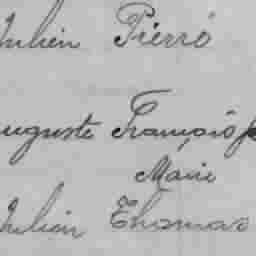 Julien Pierre
Auguste François
Marie
Julien Thomas